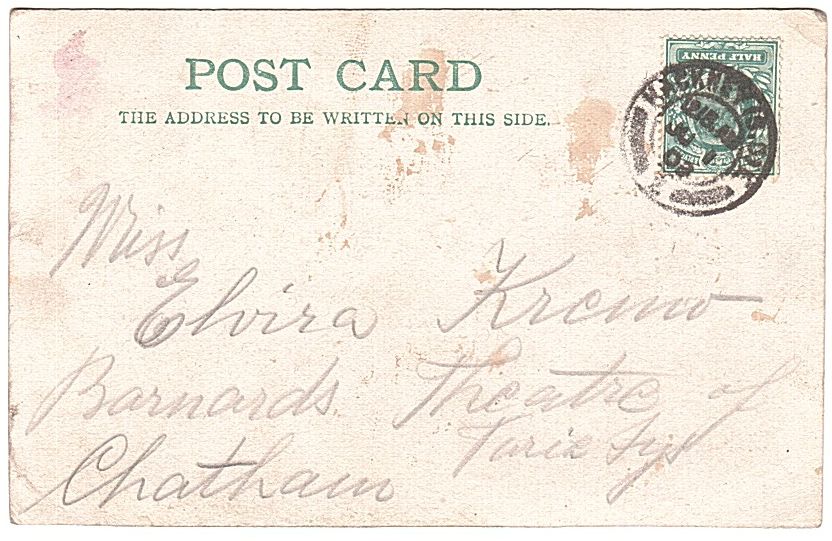 HALF PENNY
POST CARD
THE ADDRESS TO BE WRITTEN ON THIS SIDE.
HACKNEY
03
Miss
Elvira Kremo
Barnards Theatre of
Chatham